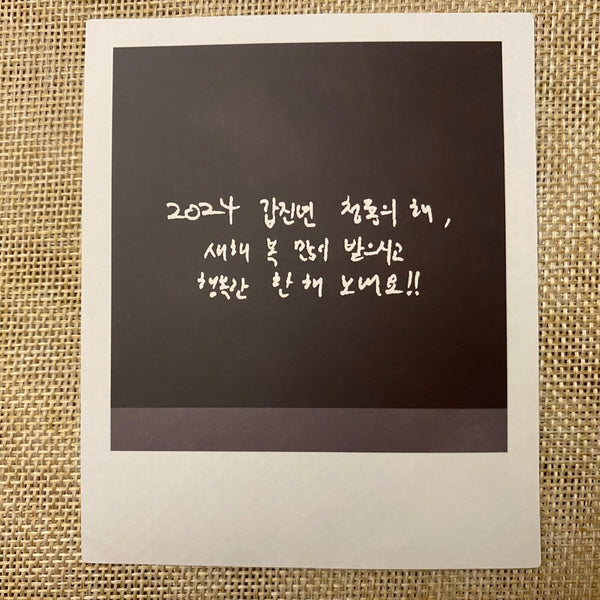 2024 갑진년 청룡의 해,
새해 복 많이 받으시고
행복한 한 해 보내요!!